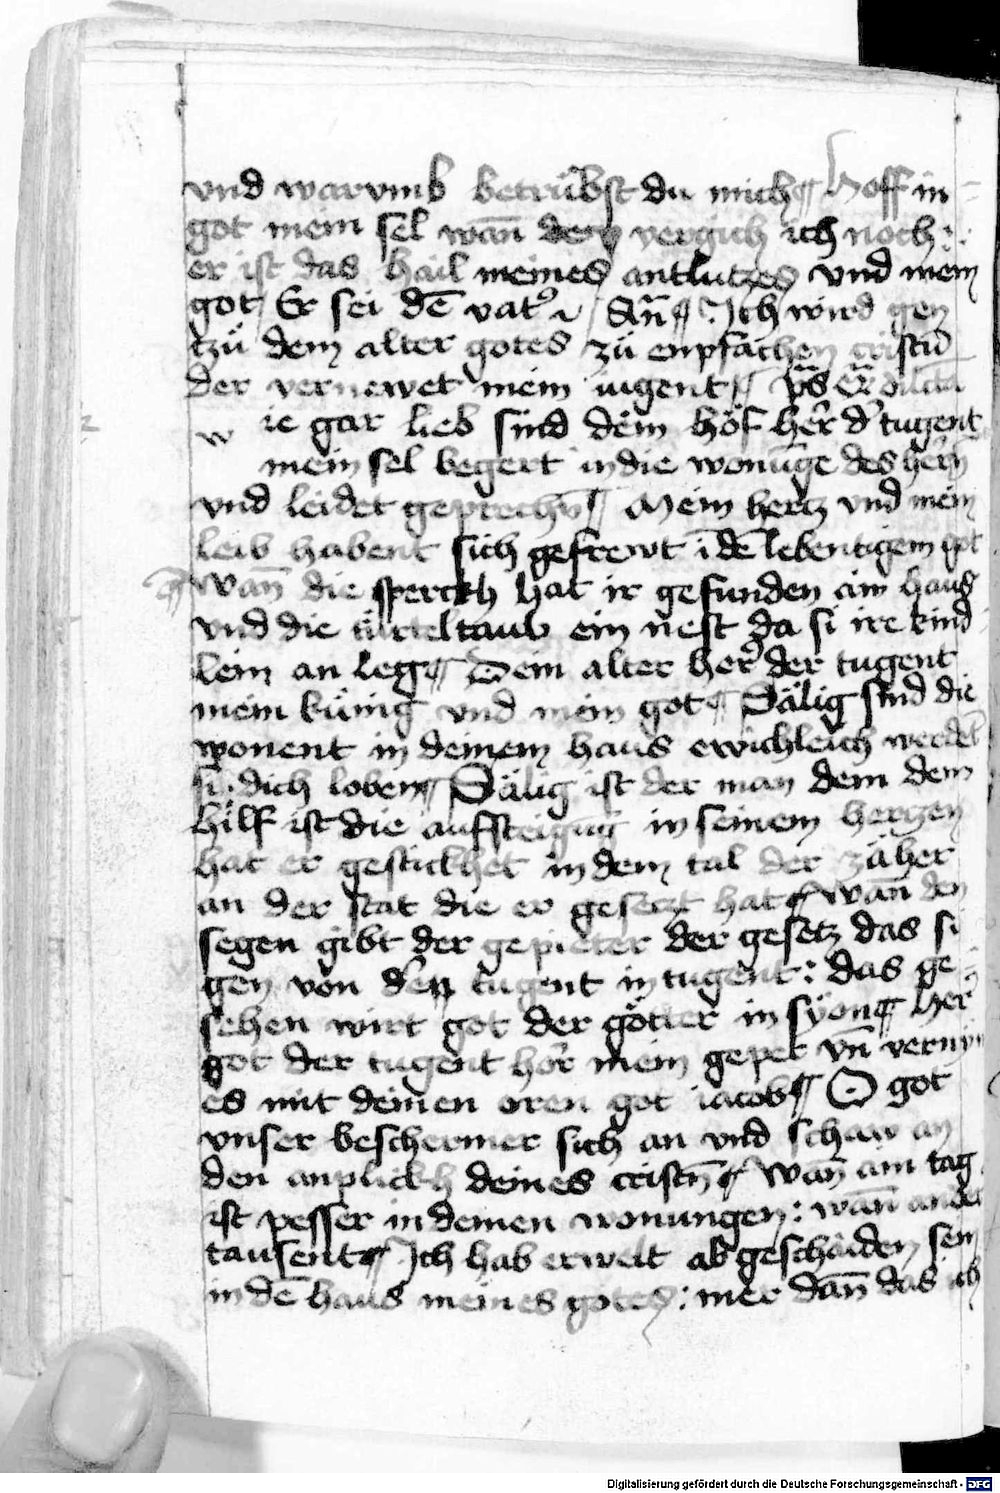 vnd warvmb betrübst du mich ¶ Hoff in
got mein sel wan̄ dem vergich ich noch:
er ist das hail meines antlutzes vnd mein
got / Er sei dē vatˀ / An̄ ¶ Ich wird gen
tzü dem alter gotes zü enpfachen cristū
der vernewet mein iugent ¶ ps
w ie gar lieb sind dein höf her̄ dˀ tugent
mein sel begert in die wonūge des her̄n
vnd leidet geprechn̄ ¶ Mein hertz vnd mein
leib habent sich gefrewt ī dē lebentigem got
¶ Wan̄ die sperckh hat ir gefunden ain haus
vnd die türteltaub ein nest da si ire kind
lein an leg ¶ Dein alter her̄ der tugent
mein künig vnd mein got ¶ Sälig sind die
wonent in deinem haus ewichleich werdent
si dich loben ¶ Sälig ist der man dem dein
hilf ist die aufsteigūg in seinem hertzen
hat er gestickhet in dem tal der zäher
an der stat die er gesetzt hat ¶ wan̄ den
segen gibt der gepieter der gesetz das si
gen von den tugent in tugent: das ge
sehen wirt got der götter in syon ¶ Her̄
got der tugent hör mein gepet vn̄ vernym
es mit deinen oren got iacob ¶ O got
vnser beschermer sich an vnd schaw an
den anplickh deines cristn̄ ¶ Wan̄ ain tag
ist pesser in deinen wonungen: wan̄ ander
tausent ¶ Ich hab erwelt abgeschaiden sein
in dē haus meines gotes: mer dan̄ das ich
Digitalisierung gefördert durch die Deutsche Forschungsgemeinschaft - DFG